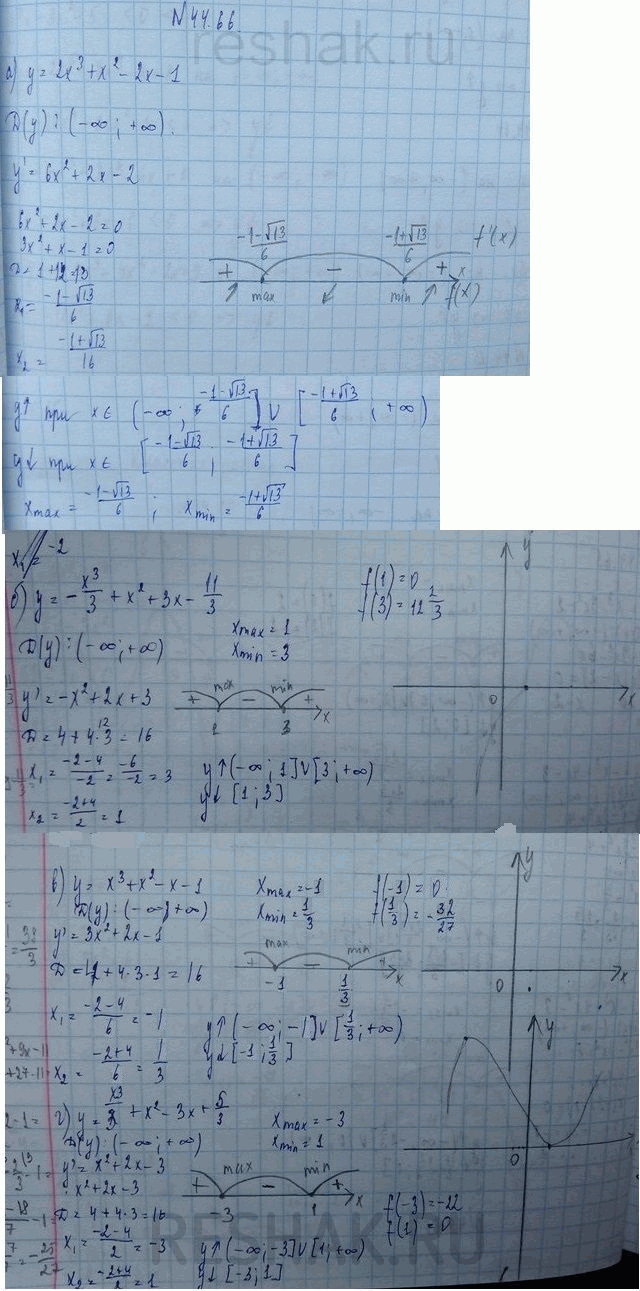 N 44.66.
reshak.ru
а) y = 2x³ + x² - 2x - 1
D(y): (-∞; +∞).
y' = 6x² + 2x - 2
6x² + 2x - 2 = 0
3x² + x - 1 = 0
D = 1 + 12 = 13
x₁ = (-1-√13)/6
x₂ = (-1+√13)/16
(-1-√13)/6 (-1+√13)/6 f'(x)
+ - + x
max min f(x)
y↑ при x ∈ (-∞; (-1-√13)/6] ∪ [(-1+√13)/6; +∞)
y↓ при x ∈ [(-1-√13)/6; (-1+√13)/6]
x max = (-1-√13)/6; x min = (-1+√13)/6
x₁ = -2
б) y = -x³/3 + x² + 3x - 11/3
D(y): (-∞; +∞)
y' = -x² + 2x + 3
D = 4 + 4·3 = 16
12
x₁ = (-2-4)/-2 = -6/-2 = 3
x₂ = (-2+4)/2 = 1
x max = 1
x min = 3
max min
+ - +
1 3 x
y↑ (-∞; 1] ∪ [3; +∞)
y↓ [1; 3]
f(1) = 0
f(3) = 12 1/3
y
0 x
в) y = x³ + x² - x - 1
D(y): (-∞; +∞)
y' = 3x² + 2x - 1
D = 4 + 4·3·1 = 16
x₁ = (-2-4)/6 = -1
x₂ = (-2+4)/6 = 1/3
x max = -1
x min = 1/3
max min
+ - +
-1 1/3 x
y↑ (-∞; -1] ∪ [1/3; +∞)
y↓ [-1; 1/3]
f(-1) = 0
f(1/3) = -32/27
y
0 x
г) y = x³/3 + x² - 3x + 5/3
D(y): (-∞; +∞)
y' = x² + 2x - 3
x² + 2x - 3
D = 4 + 4·3 = 16
x₁ = (-2-4)/2 = -3
x₂ = (-2+4)/2 = 1
x max = -3
x min = 1
max min
+ - +
-3 1 x
y↑ (-∞; -3] ∪ [1; +∞)
y↓ [-3; 1]
y
0
f(-3) = -22
f(1) = 0
RESHAK.RU